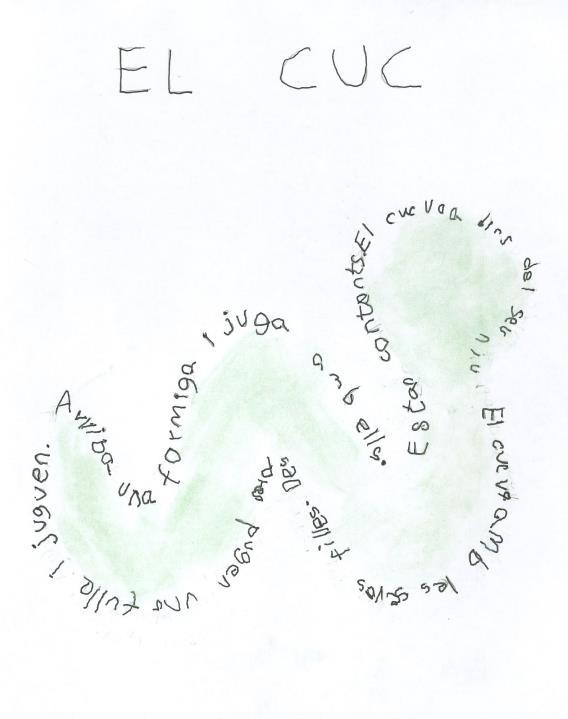 EL CUC
Arriba una formiga i juga amb ella. Estan contants. El cuc va a dins del seu niu. El cuc va amb les sevas filles. Despres pugen una fulla i juguen.